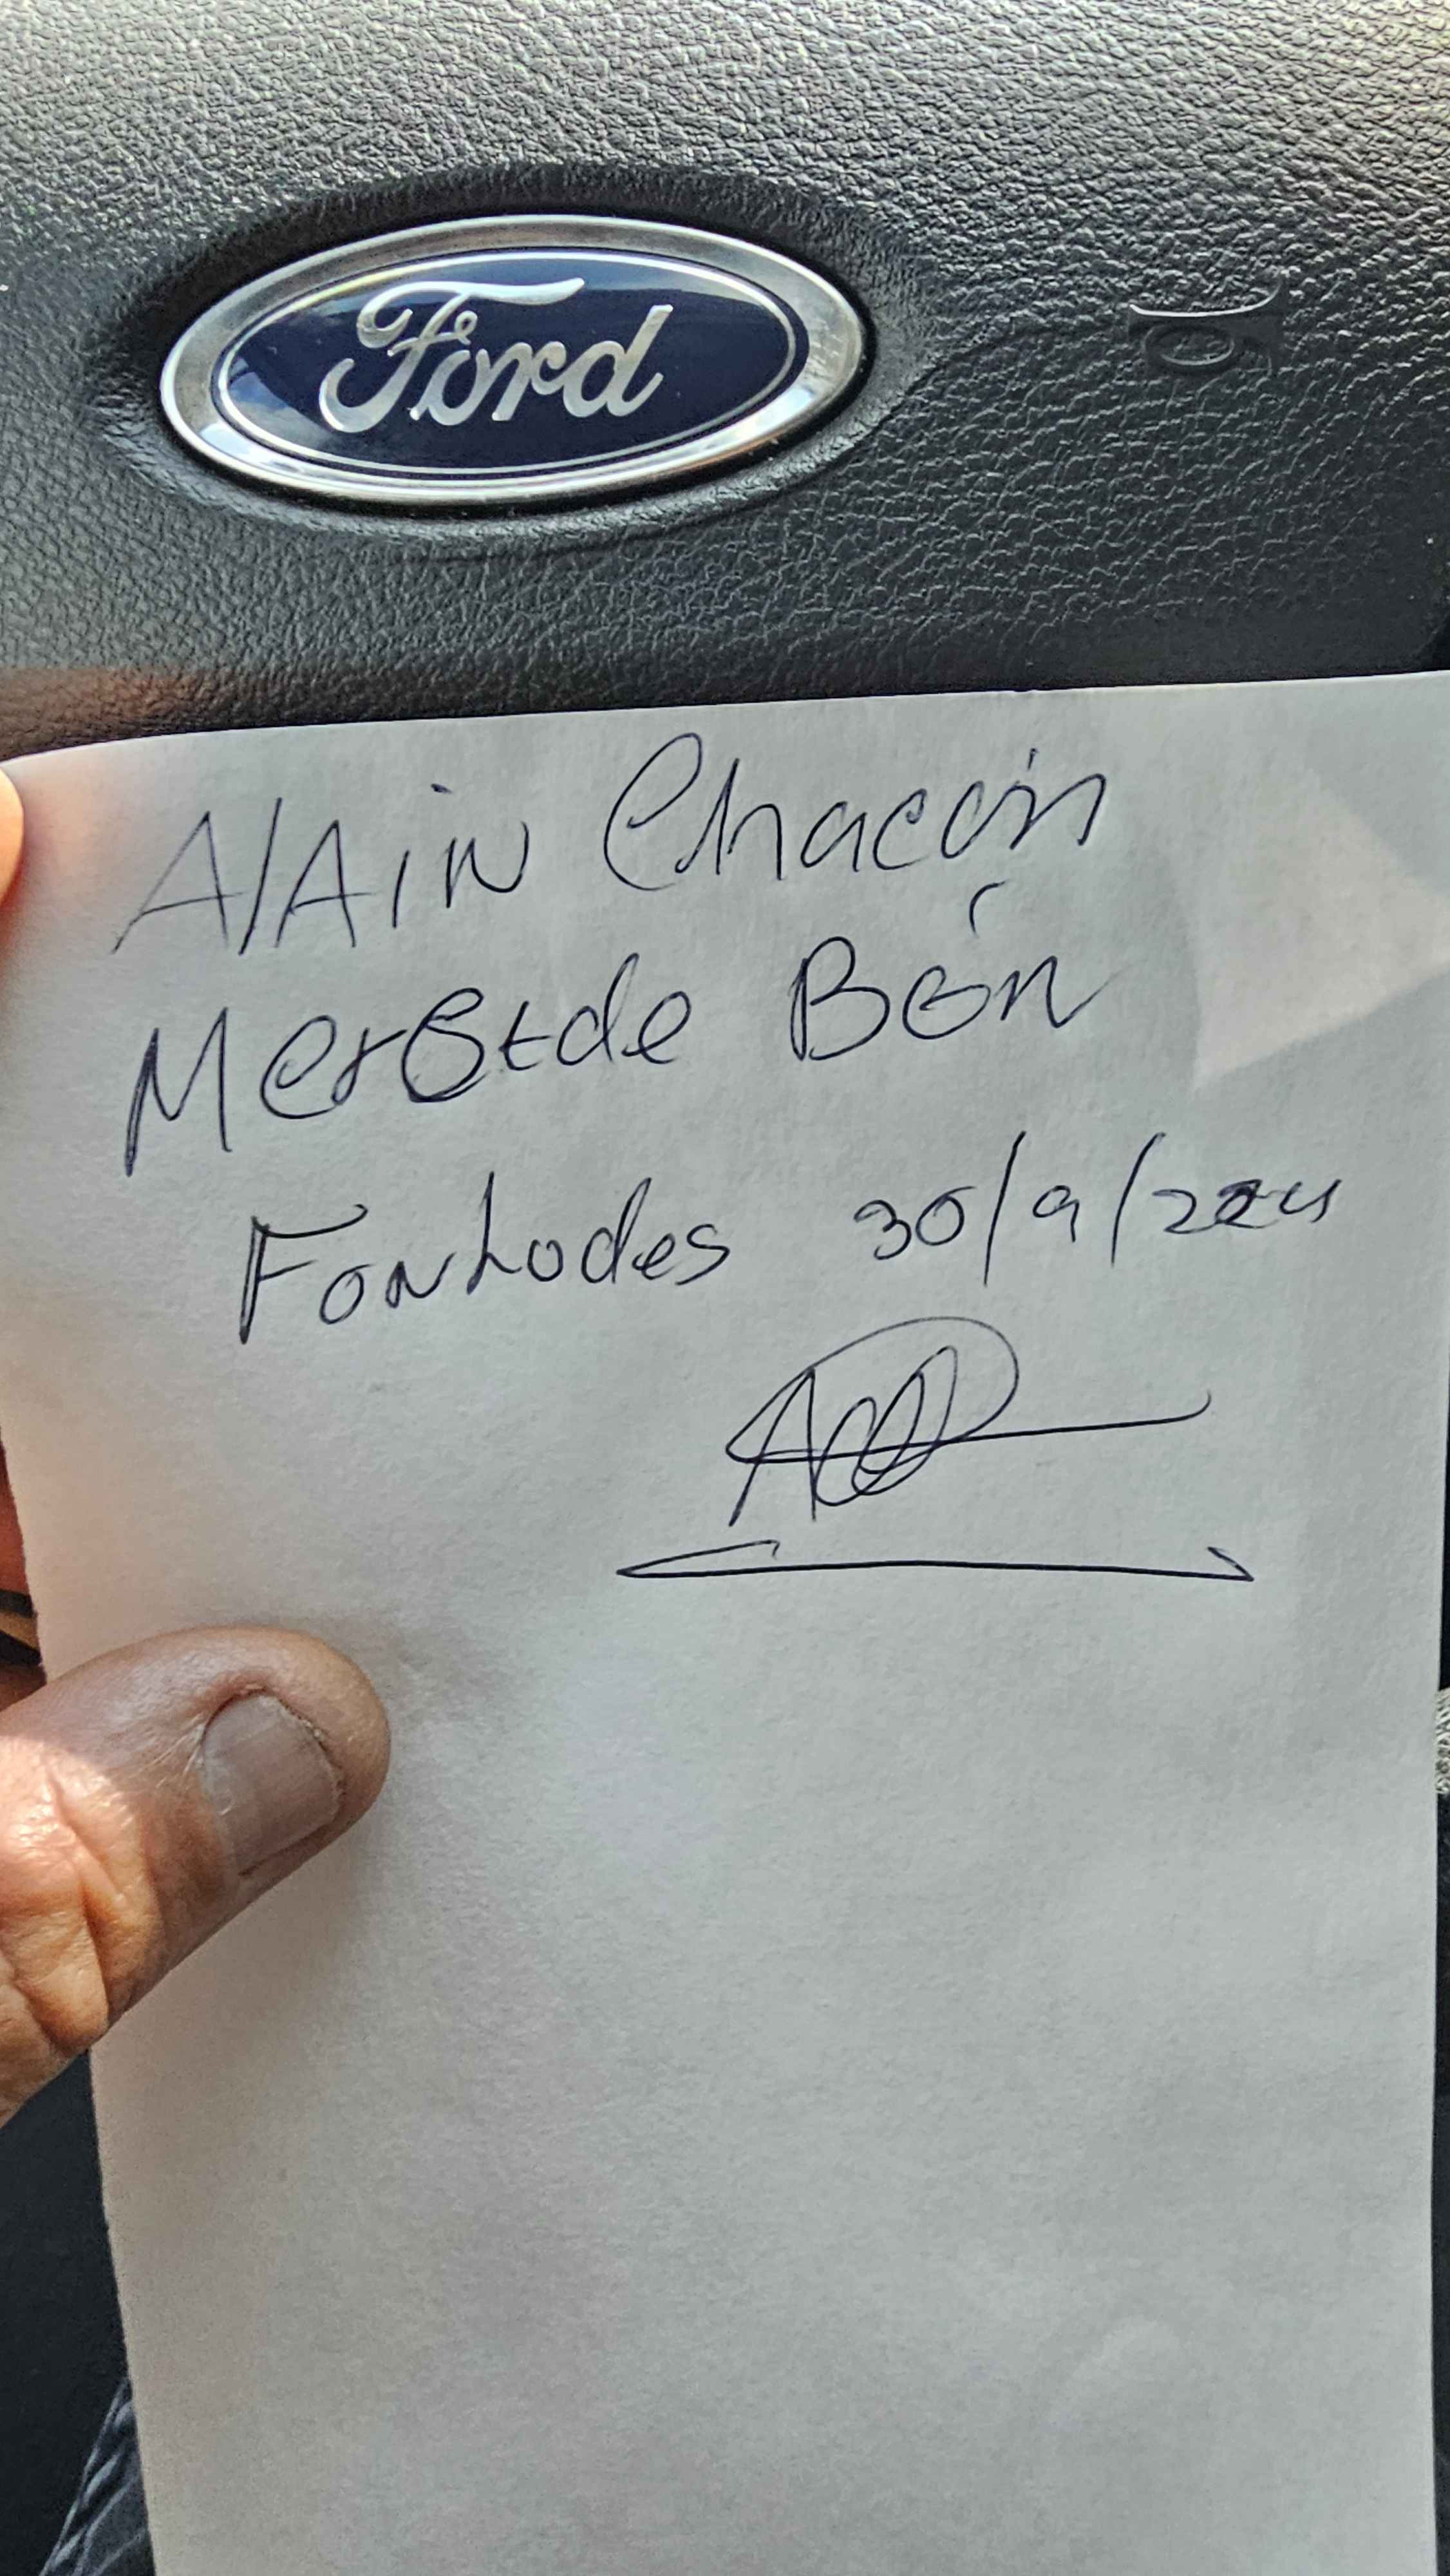 Ford
AlAiN Chacón
Merctde Bén
Fonhodes 30/9/2024